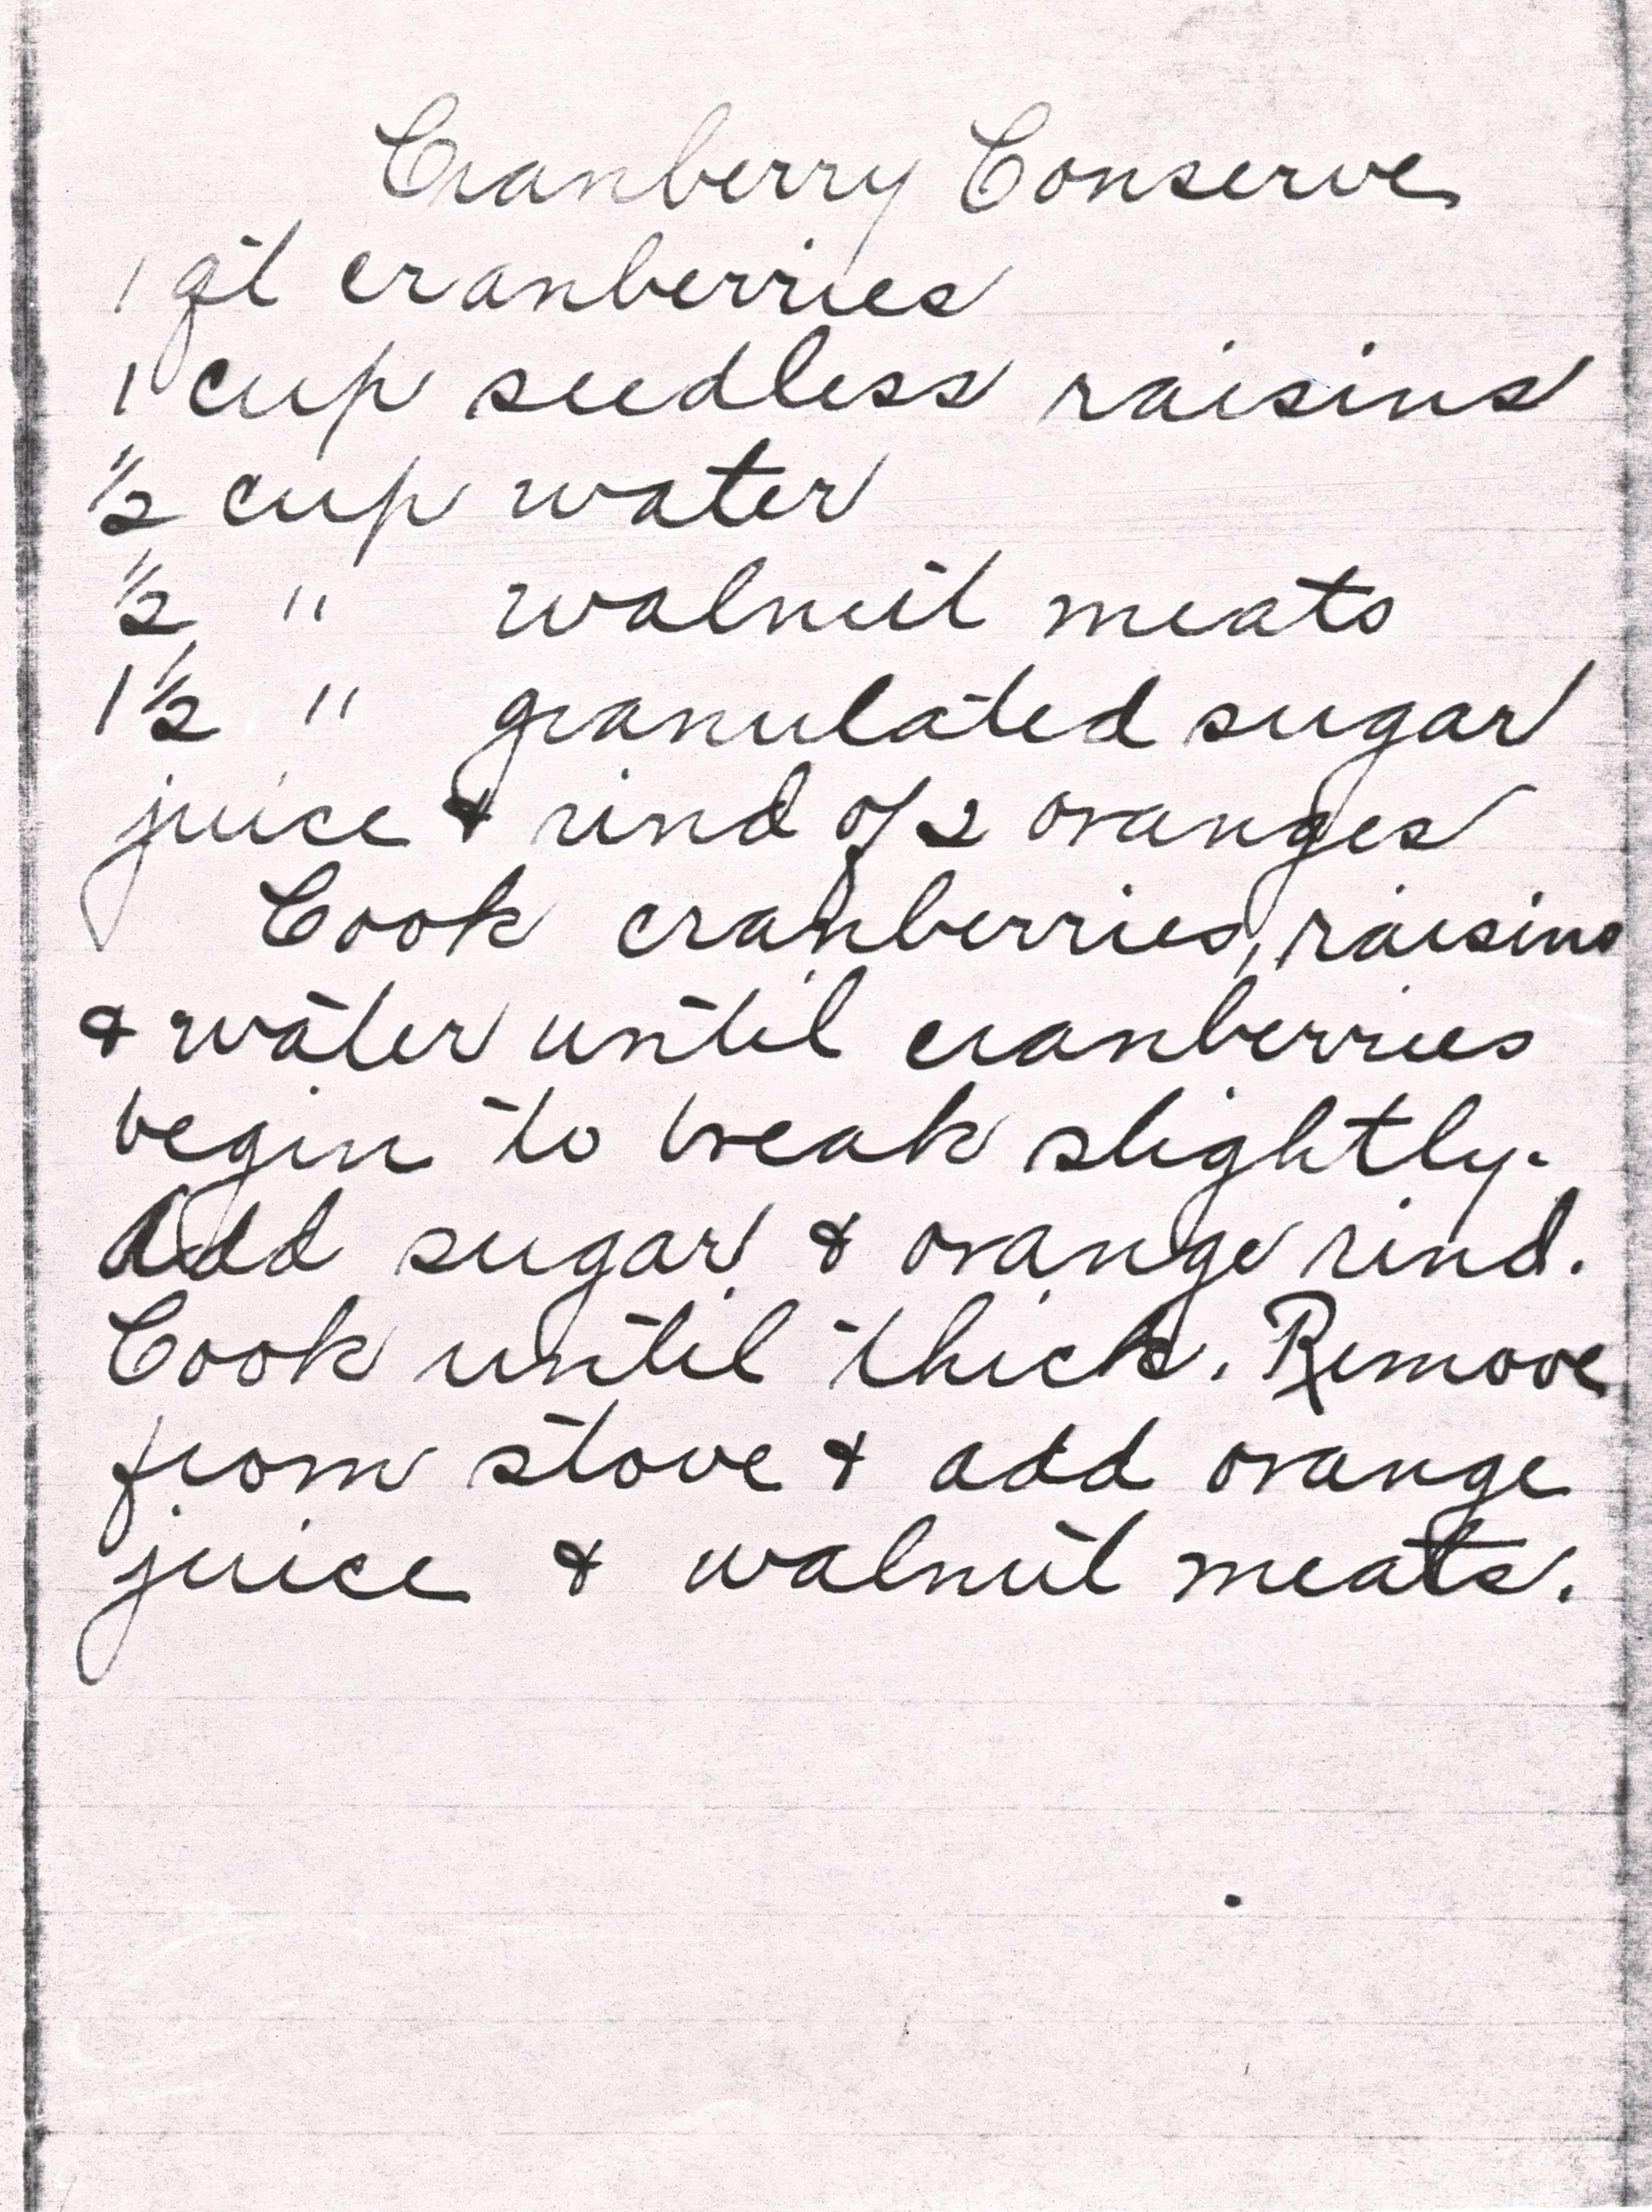 Cranberry Conserve
1 qt cranberries
1 cup seedless raisins
1/2 cup water
1/2 " walnut meats
1 1/2 " granulated sugar
juice & rind of 2 oranges
Cook cranberries, raisins
& water until cranberries
begin to break slightly.
Add sugar & orange rind.
Cook until thick. Remove
from stove & add orange
juice & walnut meats.